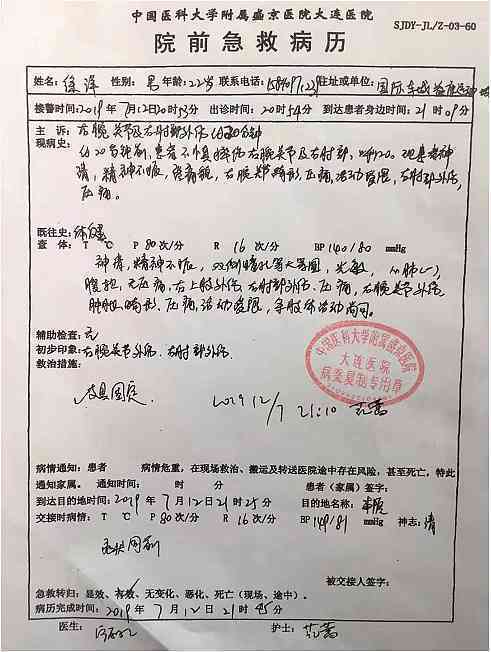 中国医科大学附属盛京医院大连医院
SJDY-JL/Z-03-60
院前急救病历
姓名: 性别: 男 年龄: 22岁 联系电话: 住址或单位: 国际
接警时间: 2019年7月12日20时53分 出诊时间: 20时54分 到达患者身边时间: 21时09分
主 诉: 右腕关节及右肘部外伤约20分钟
现病史: 约20分钟前,患者不慎摔伤右腕关节及右肘部,呼120。现患者神
清,精神不振,痛苦貌,右腕关节畸形,压痛,活动受限,右肘部外伤,
压痛。
既往史: 体健
查 体: T ℃ P 80次/分 R 16次/分 BP 140/80 mmHg
神清,精神不振,双侧瞳孔等大等圆,光敏,心肺(-),
腹软,无压痛,右上肢外伤,右肘部外伤,压痛,右腕关节外伤
肿胀畸形,压痛,活动受限,余肢体活动尚可。
辅助检查: 无
初步印象: 右腕关节外伤,右肘部外伤.
救治措施:
固定
2019 12/7 21:10
中国医科大学附属盛京医院
大连医院
病案复制专用章
病情通知: 患者 病情危重,在现场救治、搬运及转送医院途中存在风险,甚至死亡,特此
通知家属。 通知时间: 时 分 患者(家属)签字:
到达目的地时间: 2019年7月12日21时25分 目的地名称: 本院
交接时病情: T ℃ P 80次/分 R 16次/分 BP 149/81 mmHg 神志: 清
同前
被交接人签字:
急救转归: 显效、有效、无变化、恶化、死亡(现场、途中)。
病历完成时间: 2019年7月12日21时45分
医生: 护士: